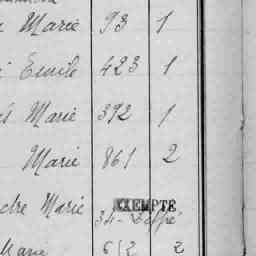 Marie 93 1
Emile 423 1
Marie 392 1
Marie 861 2
dre Marie EXEMPTÉ
34 -
Marie 612 2